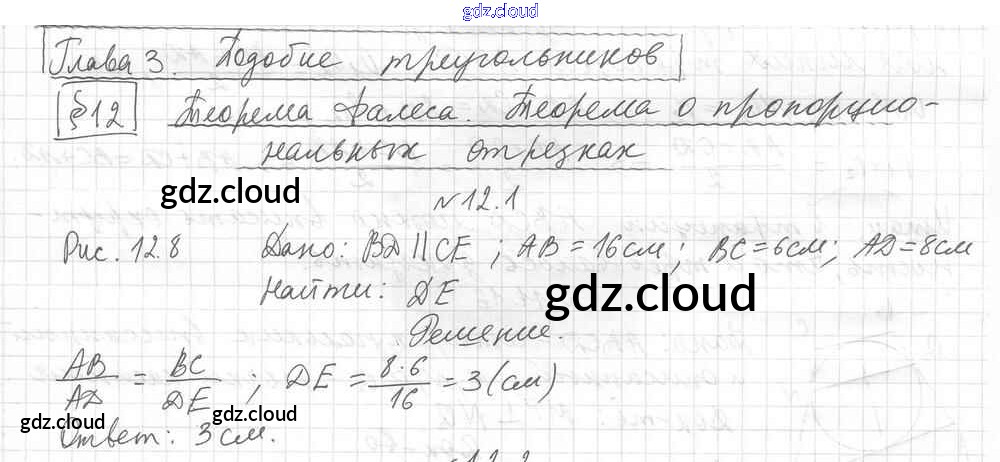 gdz.cloud
Глава 3. Подобие треугольников
§12 Теорема Фалеса. Теорема о пропорцио-
нальных отрезках
gdz.cloud
№12.1
Рис. 12.8 Дано: BD || CE ; AB = 16 см ; BC = 6 см; AD = 8 см
Найти: DE
gdz.cloud
Решение.
AB/AD = BC/DE ; DE = 8·6/16 = 3 (см)
gdz.cloud gdz.cloud
Ответ: 3 см.